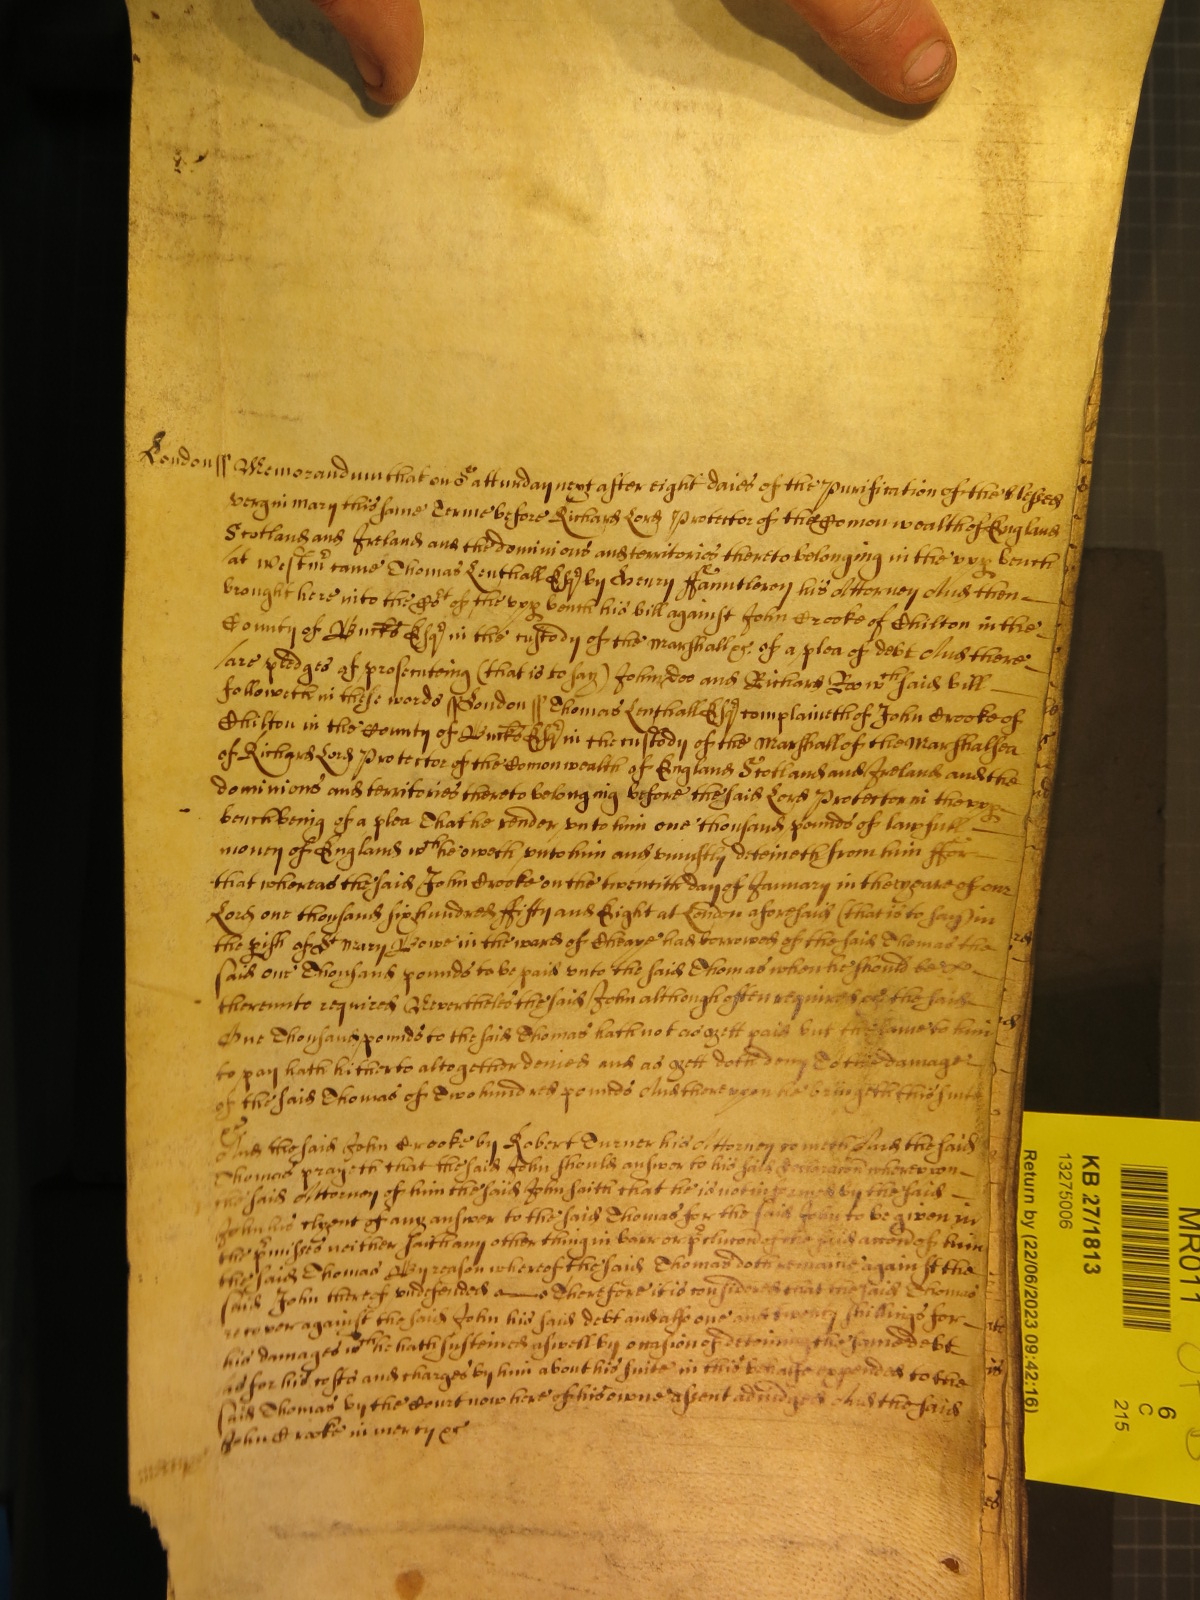 London ss Memorandum that on Satturday next after eight daies of the Purification of the blessed
vergin mary this same Terme before Richard Lord Protector of the Comon wealth of England
Scotland and Ireland and the dominions and territories thereto belonging in the upp bench
at Westmr came Thomas Lenthall Esqr by Henry ffanntleroy his Attorney And then
brought here into the Cort of the upp bench his bill against John Crooke of Chilton in the
County of Bucks Esqr in the custody of the Marshall &c of a plea of debt And there
are pledges of prosecuteing (that is to say) John doo and Richard Roo wch said bill
followeth in these words ss London ss Thomas Lenthall Esqr complaineth of John Crooke of
Chilton in the County of Bucks Esqr in the custody of the Marshall of the Marshalsea
of Richard Lord Protector of the Comonwealth of England Scotland and Ireland and the
dominions and territories thereto belonging before the said Lord Protector in the upp
bench being of a plea That he render unto him one thousand pounds of lawfull
money of England wch he oweth unto him and uniustly deteineth from him ffor
that whereas the said John Crooke on the twentith day of January in the yeare of our
Lord one thousand six hundred ffifty and Eight at London aforesaid (that is to say) in
the pish of St Mary Bowe in the ward of Cheape had borrowed of the said Thomas the
said one Thousand pounds to be paid unto the said Thomas when he should be
thereunto required Neverthelesse the said John although often required &c the said
One Thousand pounds to the said Thomas hath not as yett paid but the same to him
to pay hath hitherto altogether denied and as yett doth deny To the damage
of the said Thomas of Two hundred pounds And thereupon he bringeth this suite
&c
And the said John Crooke by Robert Turner his Attorney cometh And the said
Thomas prayeth that the said John should answer to his said declaration whereupon
the said Attorney of him the said John saith that he is not informed by the said
John his clyent of any answer to the said Thomas for the said John to be given in
the pmisses neither saith any other thing in barr or pclusion of the said accon of him
the said Thomas By reason whereof the said Thomas doth remaine against the
said John thereof undefended &c Therefore it is considered that the said Thomas
recover against the said John his said debt and also one and twenty shillings for
his damages wch he hath susteined aswell by occasion of deteining the same debt
as for his costs and charges by him about his suite in this behalfe expended to the
said Thomas by the Court now here of his owne assent adiudged And the said
John Crooke in mercy &c
MR011
KB 27/1813
13275006
Return by (22/06/2023 09:42:16)
6
C
215